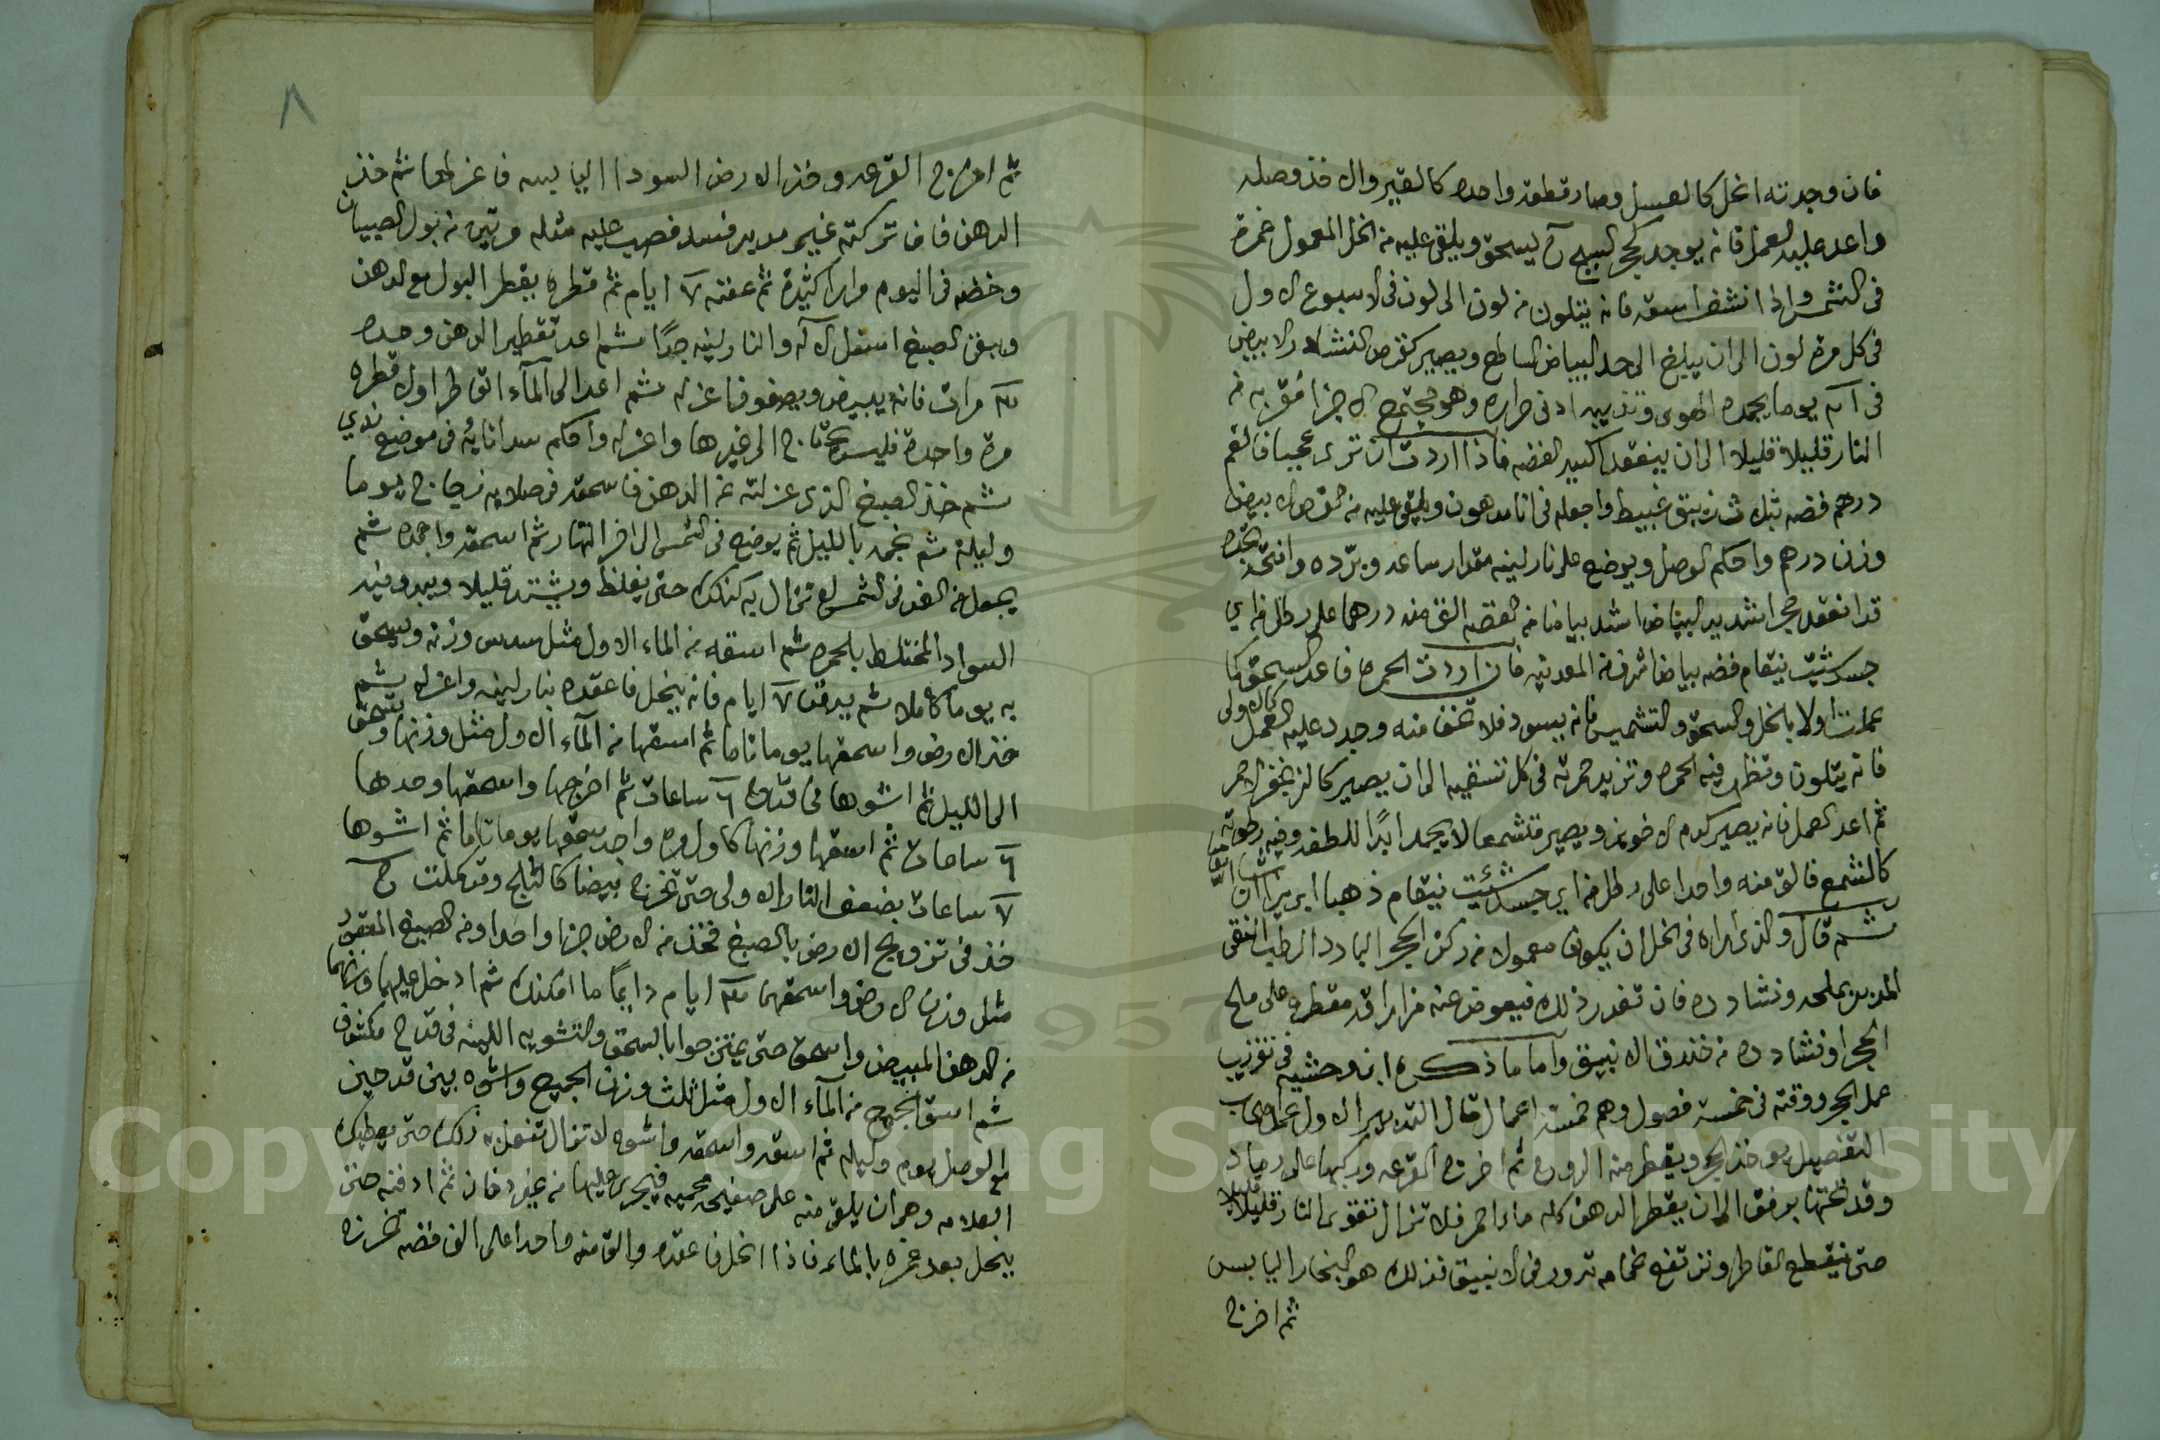 فان وجدته انحل كالعسل وصار قطعة واحدة كالقير والا خذ وصله
واعد عليه العمل فانه يوجد كحجر السبج ح يسحق ويلقى عليه من الخل المعمول غمرة
فى الشمس واذا انشف اسقه فانه يتلون من لون الى لون فى الاسبوع الاول
فى كل مرة لون الى ان يبلغ الى حد البياض الساطع ويصير كقرص النشادر الابيض
فى يوما يجمده الهوى وتذيبه ادنى حرارة وهو مجتمع الاجزا فقربه من
النار قليلا قليلا الى ان ينعقد اكسير الفضه فاذا اردت ان ترى عجبا فالغم
درهم فضه بثلاث زيبق غبيط واجعله فى انا مدهون ويلقى عليه من القرص الابيض
وزن درهم واحكم الوصل ويوضع على نار لينه مقدار ساعه وبرده وافتحه تجده
قد انعقد حجرا شديد البياض اشد بياضا من الفضه الق منه درهما على رطل من اي
جسد شئت يتقام فضه بياضا اشرف من المعدنيه فان اردت الحمرة فاعد السحق كما
عملت اولا بالخل والسحق والتشميس فانه يسود فلا تخف منه وجدد عليه العمل كالاولى
فانه يتلون وتظهر فيه الحمرة وتزيد حمرته فى كل تسقيه الى ان يصير كالزنجفر الاحمر
ثم اعد العمل فانه يصير كدم الاخوين ويصير متشمعا لا يجمد ابدا للطفه وفيه رطوبة
كالشمع فالق منه واحدا على رطل من اي جسد شئت يتقام ذهبا ابريزا ان شا الله
ثم قال والذى اراه فى الخل ان يكون معمولا من ركن الحجر البارد الرطب النقى
المدبر بملحه ونشادره فان تعذر ذلك فيعوض عنه مرارا قه مقطره على ملح
الحجر او نشادره من خندق الانبيق واما ما ذكره ابن وحشيه فى تقريب
عمل الحجر وقته فى خمسة فصول وهم خمسة اعمال قال التدبير الاول
التفصيل يوخذ الحجر ويقطر منه الروح ثم اخرج القرعه وركبها على رماد
وقد تحتها برفق الى ان يقطر الدهن كله ماء احمر فلا تزال تقوى النار قليلا قليلا
حتى ينقطع القاطر وترتفع غمامه تدور فى الانبيق فذلك هو البخار اليابس
ثم اخرج
٨
ثم اخرج القرعه وخذ الارض السودا اليابسه فاعزلها ثم خذ
الدهن فان تركته غير مدبر فسد فصب عليه مثله مرتين من بول الصبيان
وخضه فى اليوم مرارا كثيرة ثم عفنه ٧ ايام ثم قطره يقطر البول مع الدهن
ويبقى الصبغ اسفل الاله والنار لينه جدًا ثم اعد تقطير الدهن وحده
٣ مرات فانه يبيض ويصفو فاعزله ثم اعد الى الماء القاطر اولا قطره
مرة واحدة فليس يحتاج الى غيرها واعزله واحكم سد انايه فى موضع ندي
ثم خذ الصبغ الذى عزلته عن الدهن فاسحقه فى صلايه زجاج يوما
وليلة ثم نجمه بالليل ثم يوضع فى الشمس الى اخر النهار ثم اسحقه واجمده ثم
يجعل من الغد فى الشمس لا تزال به كذلك حتى يغلظ ويشتد قليلا ويبدو فيه
السواد المختلط بالحمره ثم اسقه من الماء الاول مثل سدس وزنه ويسحق
به يوما كاملا ثم يدفن ٧ ايام فانه ينحل فاعقده بنار لينه واعزله ثم
خذ الارض واسحقها يوما تاما ثم اسقها من الماء الاول مثل وزنها وتسحق
الى الليل ثم اشوها فى قدح ٦ ساعات ثم اخرجها واسحقها وحدها
٦ ساعات ثم اسقها وزنها كاول مره واحد سحقها يوما تاما ثم اشوها
٧ ساعات بضعف النار الاولى حتى تخرج بيضا كالثلج وقد كملت ح
خذ فى تزويج الارض بالصبغ فخذ من الارض جزا واحدا ومن الصبغ المعقود
مثل وزن الارض واسحقهما ٣ ايام دايمًا ما امكنك ثم ادخل عليهما وزنهما
من الدهن المبيض واسحق حتى يمتزجوا بالسحق والتشويه اللينه فى قدح مكشوف
ثم اسق الجميع من الماء الاول مثل ثلث وزن الجميع واشوه بين قدحين
مع الوصل يوم وليله ثم اسقه واسحقه واشوه لا تزال تفعل به ذلك حتى يعطيك
العلامه وهى ان يلقى منه على صفيحه محميه فيجرى عليها من غير دخان ثم ادفنه حتى
ينحل بعد غمره بالماء فاذا انحل فاعقده والق منه واحدا على الف فضه تخرج
Copyright © King Saud University
1957